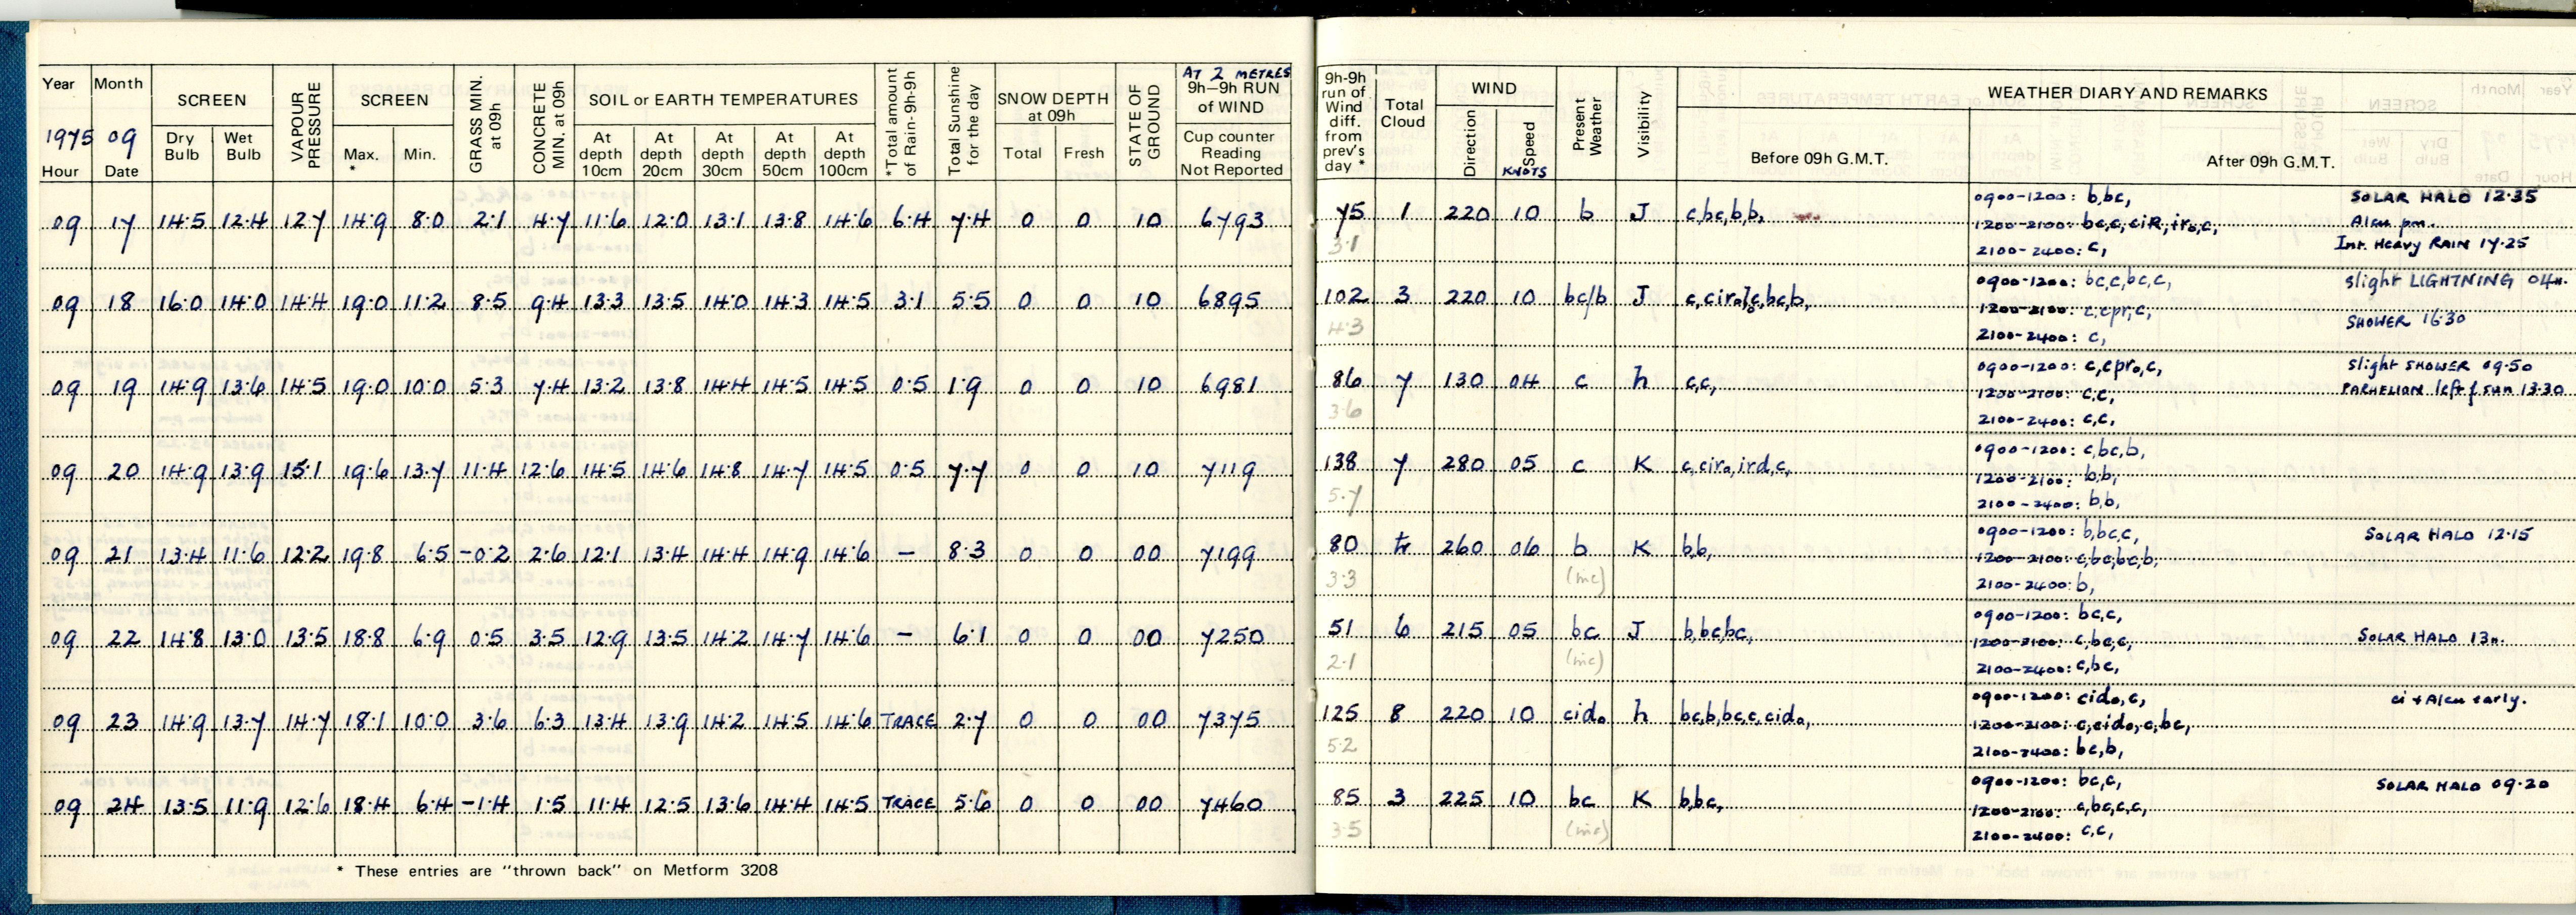 Year Month SCREEN VAPOUR PRESSURE SCREEN GRASS MIN. at 09h CONCRETE MIN. at 09h SOIL or EARTH TEMPERATURES *Total amount of Rain-9h-9h Total Sunshine for the day SNOW DEPTH at 09h STATE OF GROUND AT 2 METRES 9h–9h RUN of WIND
1975 09 Dry Bulb Wet Bulb Max. * Min. At depth 10cm At depth 20cm At depth 30cm At depth 50cm At depth 100cm Total Fresh Cup counter Reading Not Reported
Hour Date
09 17 14.5 12.4 12.7 14.9 8.0 2.1 4.7 11.6 12.0 13.1 13.8 14.6 6.4 7.4 0 0 10 6793
09 18 16.0 14.0 14.4 19.0 11.2 8.5 9.4 13.3 13.5 14.0 14.3 14.5 3.1 5.5 0 0 10 6895
09 19 14.9 13.6 14.5 19.0 10.0 5.3 7.4 13.2 13.8 14.4 14.5 14.5 0.5 1.9 0 0 10 6981
09 20 14.9 13.9 15.1 19.6 13.7 11.4 12.6 14.5 14.6 14.8 14.7 14.5 0.5 7.7 0 0 10 7119
09 21 13.4 11.6 12.2 19.8 6.5 -0.2 2.6 12.1 13.4 14.4 14.9 14.6 – 8.3 0 0 00 7199
09 22 14.8 13.0 13.5 18.8 6.9 0.5 3.5 12.9 13.5 14.2 14.7 14.6 – 6.1 0 0 00 7250
09 23 14.9 13.7 14.7 18.1 10.0 3.6 6.3 13.4 13.9 14.2 14.5 14.6 TRACE 2.7 0 0 00 7375
09 24 13.5 11.9 12.6 18.4 6.4 -1.4 1.5 11.4 12.5 13.6 14.4 14.5 TRACE 5.6 0 0 00 7460
* These entries are "thrown back" on Metform 3208
9h-9h run of Wind diff. from prev's day * Total Cloud WIND Direction Speed KNOTS Present Weather Visibility WEATHER DIARY AND REMARKS
Before 09h G.M.T. After 09h G.M.T.
75 1 220 10 b J c,bc,b,b, 0900-1200: b,bc, SOLAR HALO 12.35
3.1 1200-2100: bc,c,ciR,iro,c, Alcu pm.
2100-2400: c, Int. Heavy RAIN 17.25
102 3 220 10 bc/b J 0900-1200: bc,c,bc,c, slight LIGHTNING 04h.
4.3 1200-2100: c,cpr,c, SHOWER 16.30
2100-2400: c,
86 7 130 04 c h c,c, 0900-1200: c,cpro,c, slight SHOWER 09.50
3.6 1200-2100: c,c, PARHELION left of sun 13.30
2100-2400: c,c,
138 7 280 05 c K c,ciro,ird,c, 0900-1200: c,bc,b,
5.7 1200-2100: b,b,
2100-2400: b,b,
80 tr 260 06 b K b,b, 0900-1200: b,bc,c, SOLAR HALO 12.15
3.3 (mc) 1200-2100: c,bc,bc,b,
2100-2400: b,
51 6 215 05 bc J b,bc,bc, 0900-1200: bc,c,
2.1 (mc) 1200-2100: c,bc,c, SOLAR HALO 13h.
2100-2400: c,bc,
125 8 220 10 cido h bc,b,bc,c,cido, 0900-1200: cido,c, ci + Alcu early.
5.2 1200-2100: c,cido,c,bc,
2100-2400: bc,b,
85 3 225 10 bc K b,bc, 0900-1200: bc,c, SOLAR HALO 09.20
3.5 (mc) 1200-2100: c,bc,c,c,
2100-2400: c,c,